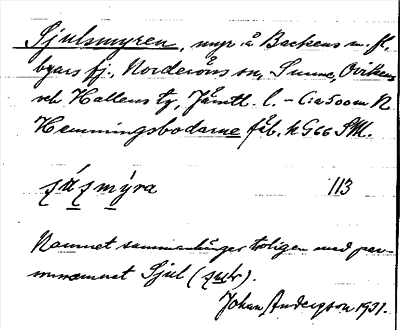 Sjulsmyren, myr å Backens m. fl.
byars fj., Norderöns sn, Sunne, Ovikens
och Hallens tg, Jämtl. l. – C:a 500 m N
Hemmingsbodarne fäb. k G 66 SM.
mýra 113
Namnet sammanhänger troligen med per-
sonnamnet Sjul
Johan Andersson 1931.